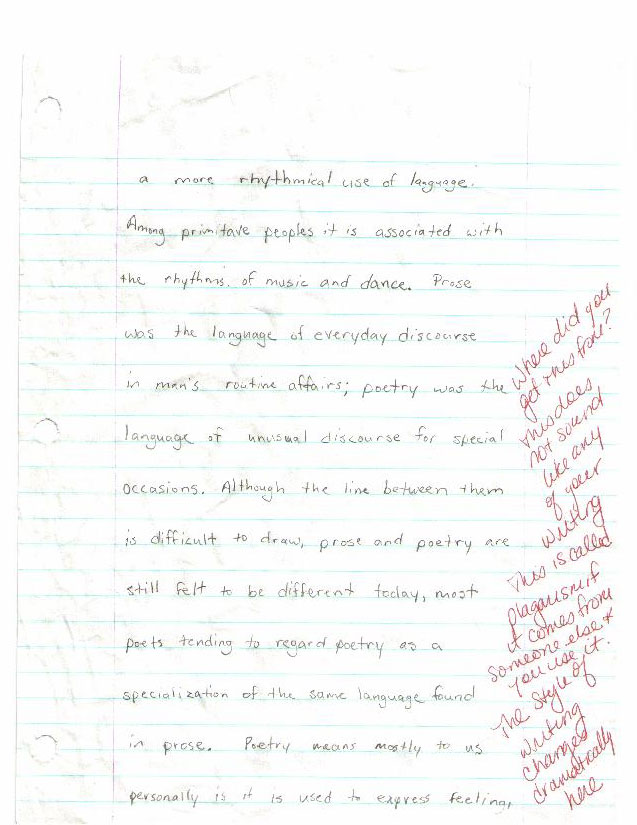 a more rhythmical use of language.
Among primitave peoples it is associated with
the rhythms. of music and dance. Prose
was the language of everyday discourse
in man's routine affairs; poetry was the
language of unusual discourse for special
occasions. Although the line between them
is difficult to draw, prose and poetry are
still felt to be different today, most
poets tending to regard poetry as a
specialization of the same language found
in prose. Poetry means mostly to us
personally is it is used to express feeling,
Where did you
get this from?
This does
not sound
like any
of your
writing
This is called
plagarism if
it comes from
someone else &
you use it.
The style of
writing
changed
dramatically
here